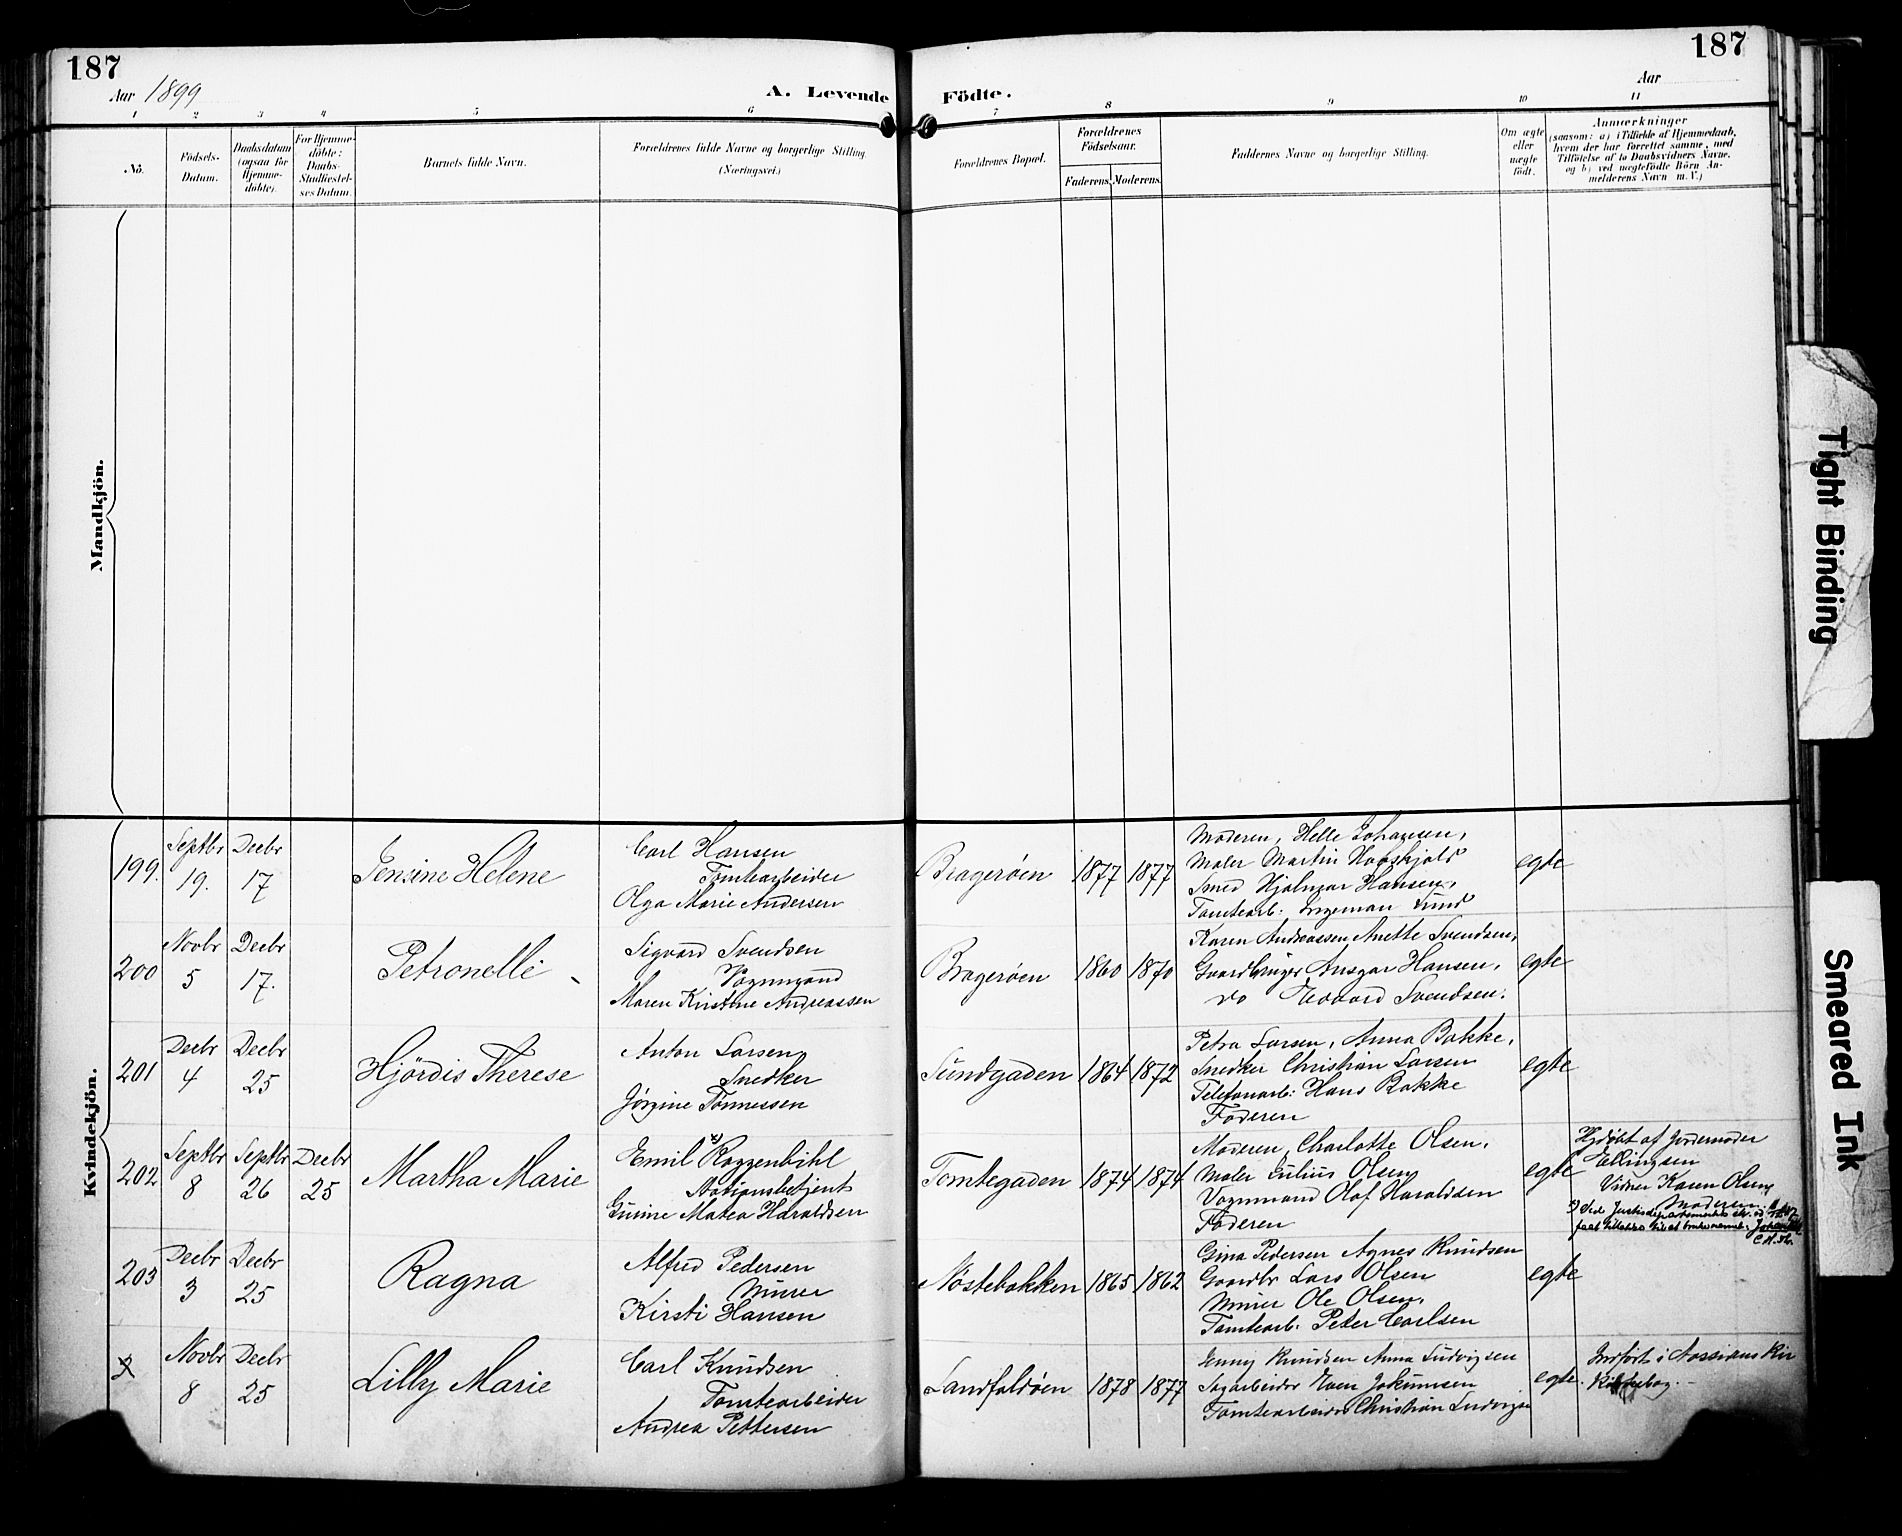 187
187
Aar 1899
A. Levende Födte.
Aar
1 2 3 4 5 6 7 8 9 10 11
No.
Födsels-Datum.
Daabsdatum (ogsaa for Hjemme-döbte).
For Hjemme-döbte: Daabs-Stadfæstel-ses Datum.
Barnets fulde Navn.
Forældrenes fulde Navne og borgerlige Stilling
(Næringsvei.)
Forældrenes Bopæl.
Forældrenes Födselsaar.
Faderens. Moderens.
Faddernes Navne og borgerlige Stilling.
Om ægte eller uægte födt.
Anmærkninger
(saasom: a) i Tilfælde af Hjemmedaab,
hvem der har forrettet samme, med
Tilföielse af to Daabsvidners Navne,
og b) ved uægtefödte Börn An-
melderens Navn m. V.)
Mandkjön.
Kvindekjön.
199. Septbr 19. Decbr 17
Jensine Helene
Carl Hansen
Tomtearbeider
Olga Marie Andersen
Bragerøen 1877 1877
Moderen, Helle Johansen,
Maler Martin
Smed Hjalmar Hansen,
Tomtearb. Ingeman Lund
egte
200 Novbr 5 Decbr 17.
Petronelle
Sigvard Svendsen
Vognmand
Maren Kristine Andreassen
Bragerøen 1860 1870
Karen Andreassen, Anette Svendsen,
Gaardbruger Ansgar Hansen,
do Edvard Svendsen.
egte
201 Decbr 4 Decbr 25
Hjördis Therese
Anton Larsen,
Snedker
Jörgine Tönnessen
Sundgaden 1864 1872
Petra Larsen, Anna Bakke,
Snedker Christian Larsen
Telefonarb: Hans Bakke
Faderen
egte
202 Septbr 8 Septbr 26 Decbr 25
Martha Marie
Emil Roggenbihl
Stationsbetjent
Gusine Matea Haraldsen
Tomtegaden 1874 1874
Moderen, Charlotte Olsen,
Maler Julius Olsen
Vognmand Olaf Haraldsen
Faderen
egte
Hjdøbt af Jordemoder
Ellingsen
Vidner Karen Olsen
Moderen.
203 Decbr 3 Decbr 25
Ragna
Alfred Pedersen
Murer
Kirsti Hansen
Nöstebakken 1865 1862
Gina Pedersen Agnes Knudsen
Gaardbr Lars Olsen
Murer Ole Olsen,
Tomtearb. Peter Carlsen
egte
Novbr 8 Decbr 25
Lilly Marie
Carl Knudsen
Tomtearbeider
Andrea Pettersen
Landfaldöen 1878 1877
Jenny Knudsen Anna Ludvigsen
Sagarbeider Even Jokumsen
Tomtearbeider Christian Ludvigse
egte.
Indført i
Kirkebog.
Tight Binding
Smeared Ink